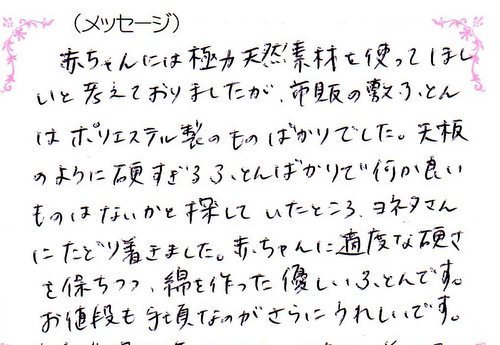 （メッセージ）
赤ちゃんには極力天然素材を使ってほし
いと考えておりましたが、市販の敷ふとん
はポリエステル製のものばかりでした。天板
のように硬すぎるふとんばかりで何か良い
ものはないかと探していたところ、ヨネタさん
にたどり着きました。赤ちゃんに適度な硬さ
を保ちつつ、綿を作った優しいふとんです。
お値段も手頃なのがさらにうれしいです。